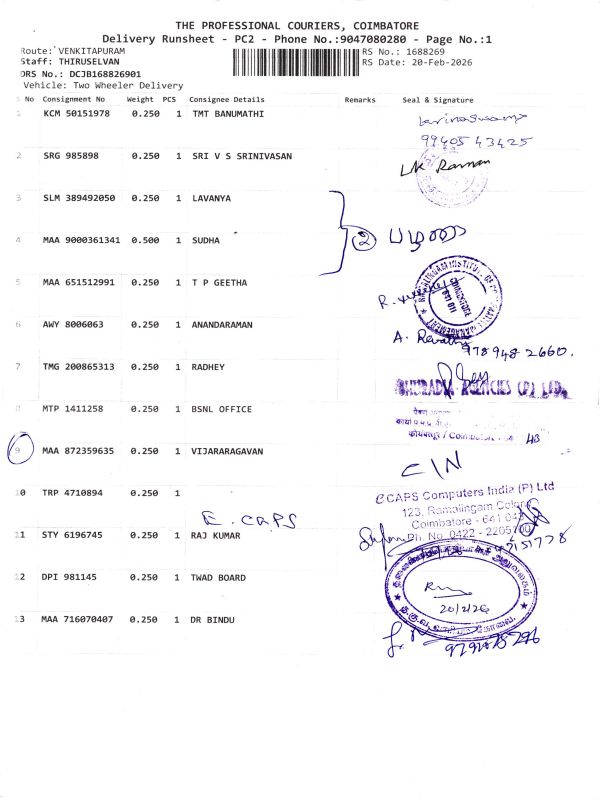 THE PROFESSIONAL COURIERS, COIMBATORE
Delivery Runsheet - PC2 - Phone No.:9047080280 - Page No.:1
Route: VENKITAPURAM
RS No.: 1688269
Staff: THIRUSELVAN
RS Date: 20-Feb-2026
DRS No.: DCJB168826901
Vehicle: Two Wheeler Delivery
S No Consignment No Weight PCS Consignee Details Remarks Seal & Signature
1 KCM 50151978 0.250 1 TMT BANUMATHI
99405 43425
2 SRG 985898 0.250 1 SRI V S SRINIVASAN
LN Raman
3 SLM 389492050 0.250 1 LAVANYA
4 MAA 9000361341 0.500 1 SUDHA
2
5 MAA 651512991 0.250 1 T P GEETHA
R.
6 AWY 8006063 0.250 1 ANANDARAMAN
A. Revathi
978948 2660.
7 TMG 200865313 0.250 1 RADHEY
AGENCIES (P) LTD.
8 MTP 1411258 0.250 1 BSNL OFFICE
9 MAA 872359635 0.250 1 VIJARARAGAVAN
C/N
10 TRP 4710894 0.250 1
E. CAPS
eCAPS Computers India (P) Ltd
123, Ramalingam Colony
Coimbatore - 641 043
Ph. No. 0422 - 2205700
11 STY 6196745 0.250 1 RAJ KUMAR
12 DPI 981145 0.250 1 TWAD BOARD
20/2/26
13 MAA 716070407 0.250 1 DR BINDU